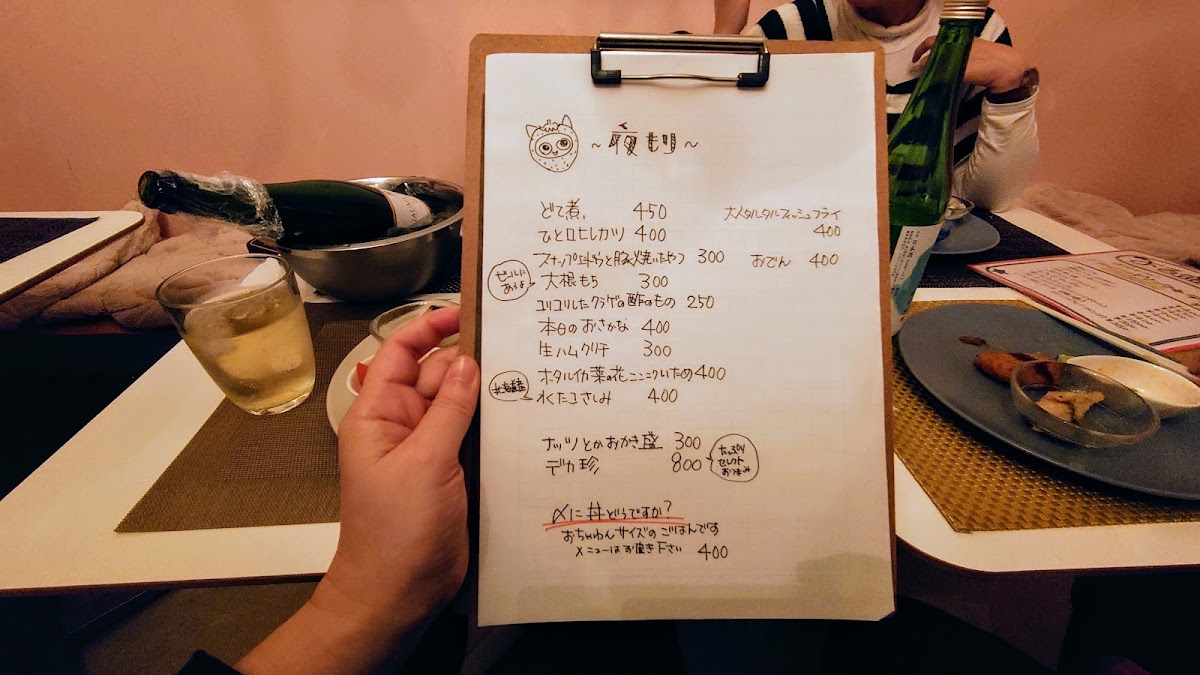 ~夜もり~
どて煮 450
ひと口ヒレカツ 400
スナップエンドウと豚バラ焼いたやつ 300
ビールにあうよ
大根もち 300
コリコリしたクラゲの酢のもの 250
本日のおさかな 400
生ハムクリチ 300
ホタルイカ菜の花ニンニクいため 400
北海道産
水たこさしみ 400
大人タルタルフィッシュフライ
400
おでん 400
ナッツとかおかき盛 300
デカ珍 800
たっぷり
セレクト
おつまみ
〆に丼どうですか?
おちゃわんサイズのごはんです
メニューはお聞き下さい 400